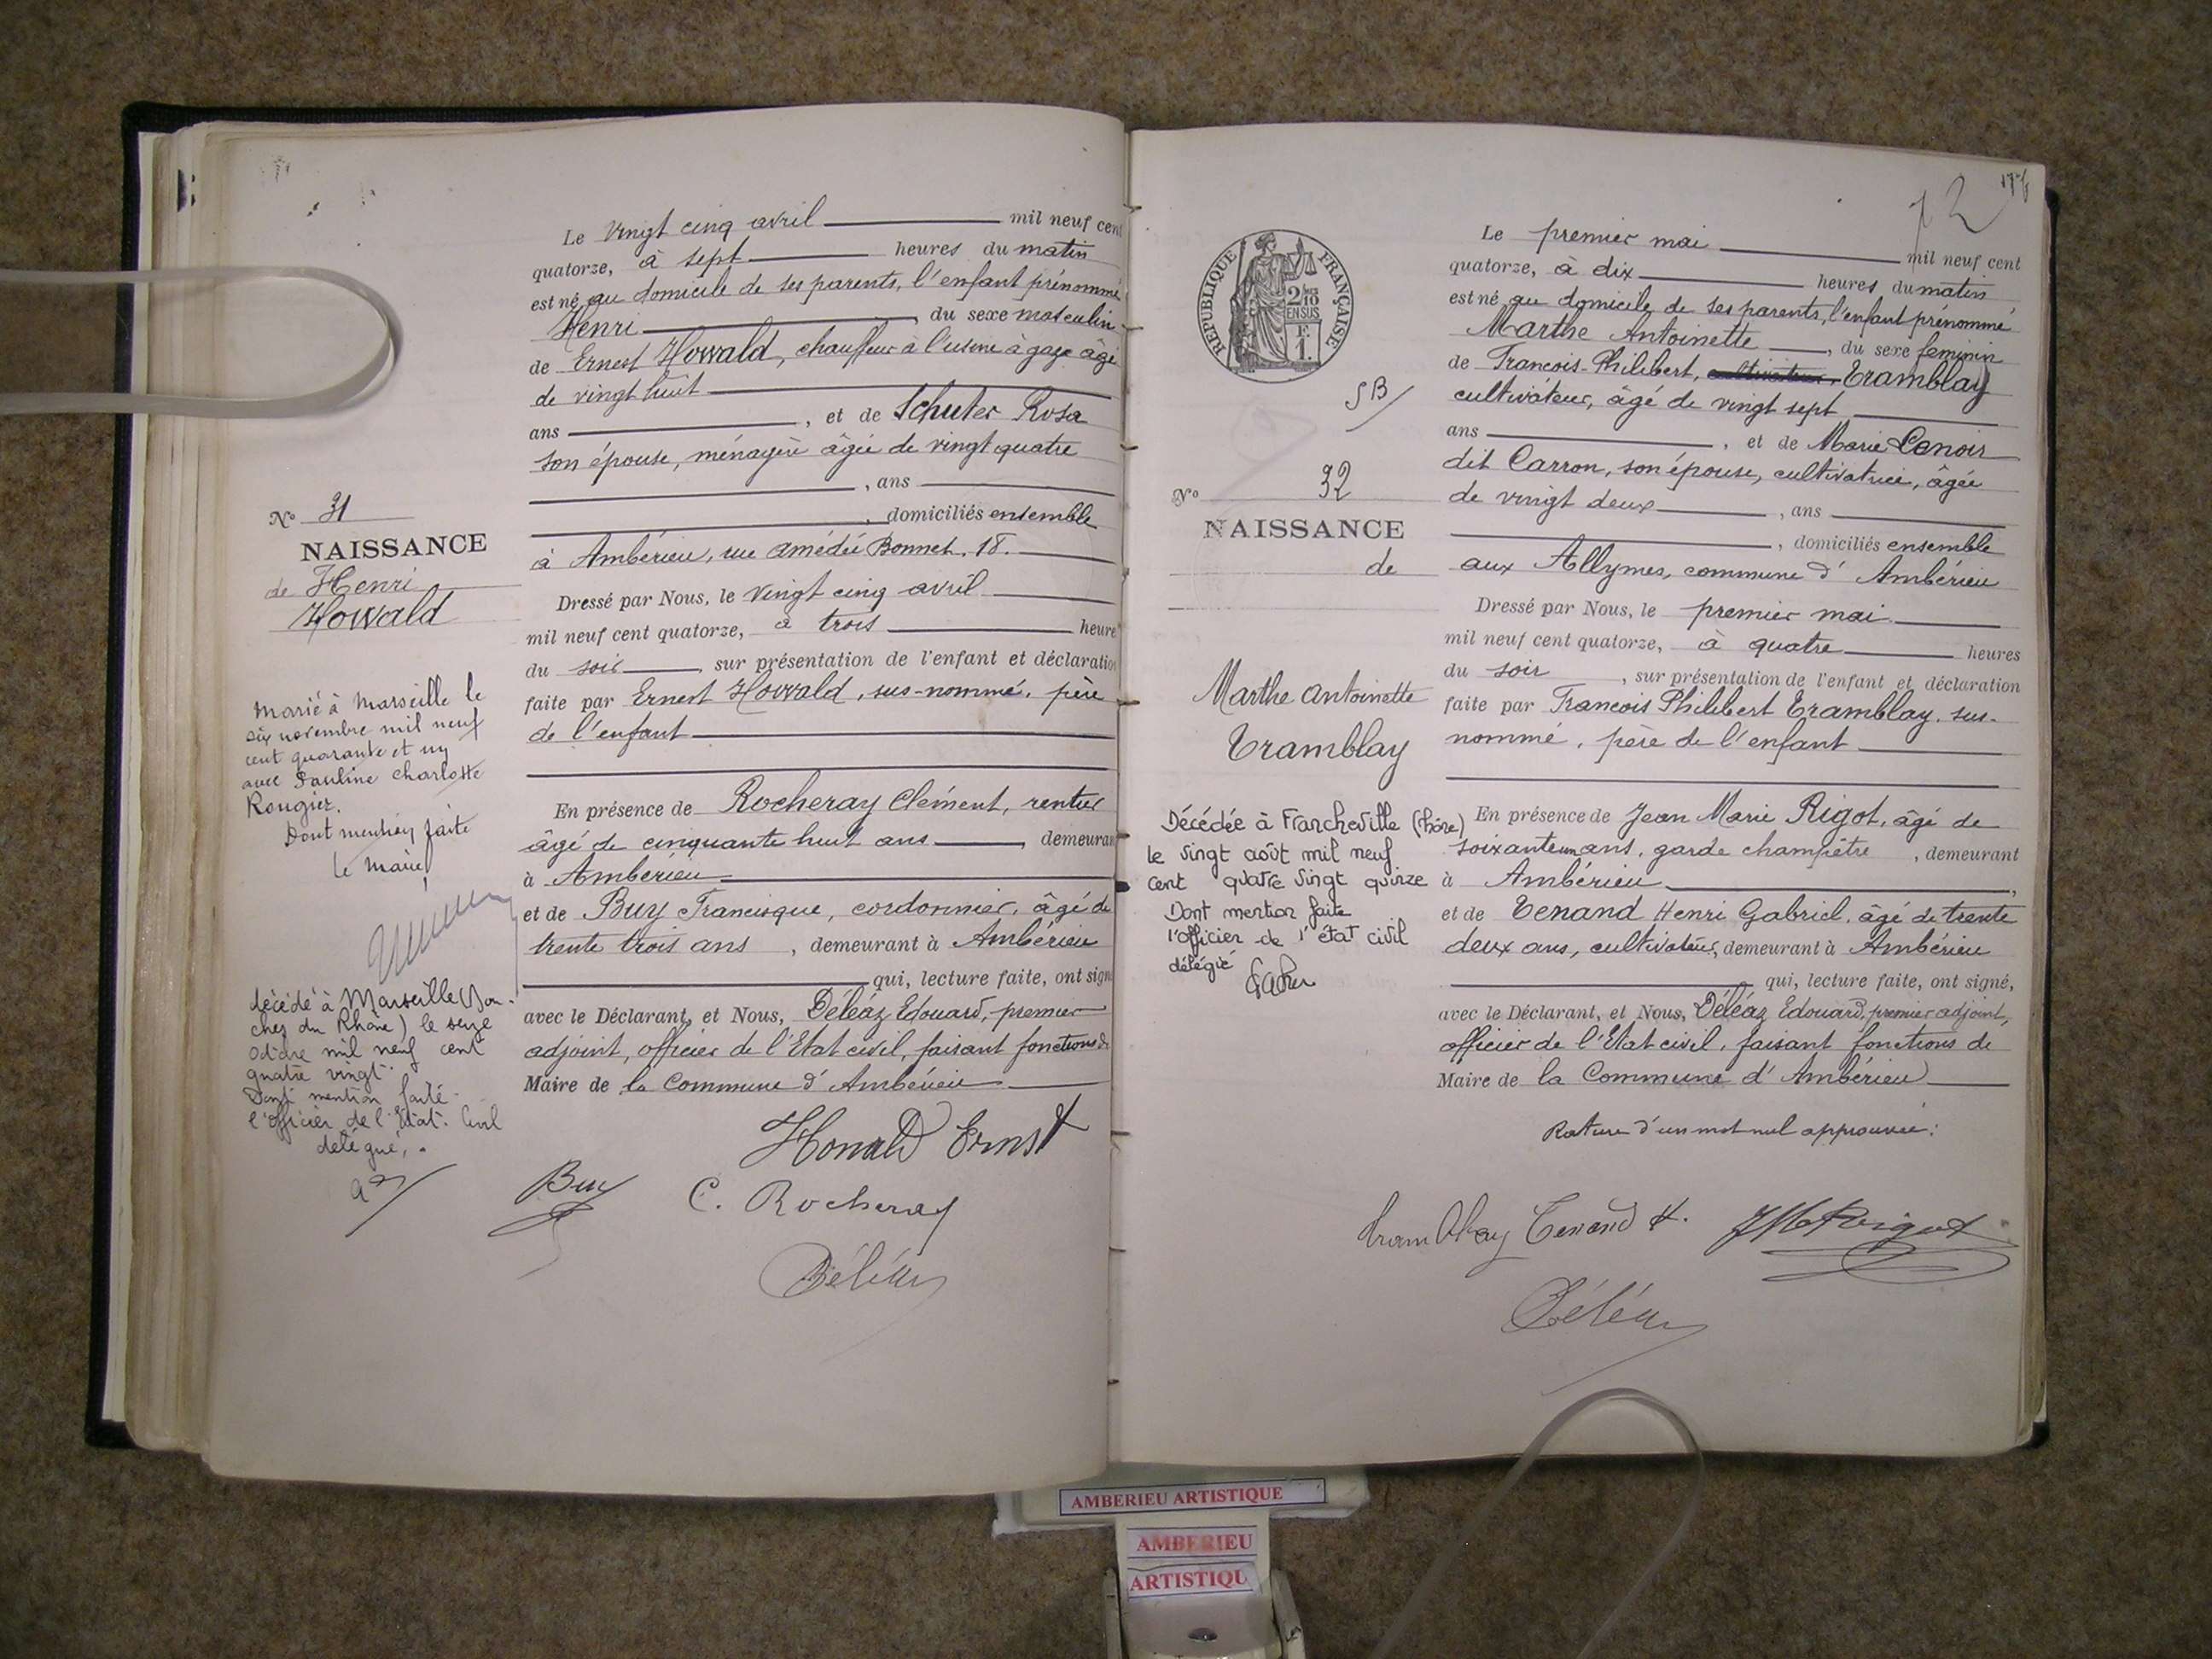 Le vingt cinq avril mil neuf cent
quatorze, à sept heures du matin
est né au domicile de ses parents, l'enfant prénommé
Henri, du sexe masculin
de Ernest Howald, chauffeur à l'usine à gaz âgé
de vingt huit
ans, et de Schuter Rosa
son épouse, ménagère âgée de vingt quatre
, ans
, domiciliés ensemble
à Ambérieu, rue Amédée Bonnet, 18.
Dressé par Nous, le vingt cinq avril
mil neuf cent quatorze, à trois heure
du soir, sur présentation de l'enfant et déclaration
faite par Ernest Howald, sus-nommé, père
de l'enfant
En présence de Rocheray Clément, rentier
âgé de cinquante huit ans, demeuran
à Ambérieu
et de Buy Francisque, cordonnier, âgé de
trente trois ans, demeurant à Ambérieu
qui, lecture faite, ont signé
avec le Déclarant, et Nous, Déléaz Edouard, premier
adjoint, officier de l'Etat civil, faisant fonctions de
Maire de la Commune d'Ambérieu
Howald Ernst
Buy C. Rocheray
Déléaz
No 31
NAISSANCE
de Henri
Howald
Marié à Marseille le
six novembre mil neuf
cent quarante et un
avec Pauline Charlotte
Rougier.
Dont mention faite
le Maire
décédé à Marseille (Bou-
ches du Rhône) le seize
octobre mil neuf cent
quatre vingt.
Dont mention faite
l'officier de l'Etat. Civil
délégué,
72
RÉPUBLIQUE FRANÇAISE
2/10
EN SUS
F.
1.
SB
No 32
NAISSANCE
de
Marthe Antoinette
Tramblay
Décédée à Francheville (Rhône)
le vingt août mil neuf
cent quatre vingt quinze
Dont mention faite
l'officier de l'état civil
délégué
Le premier mai mil neuf cent
quatorze, à dix heures du matin
est né au domicile de ses parents, l'enfant prénommé
Marthe Antoinette, du sexe feminin
de Francois-Philibert, cultivateur, Tramblay
cultivateur, âgé de vingt sept
ans, et de Marie Lenoir
dit Carron, son épouse, cultivatrice, âgée
de vingt deux, ans
, domiciliés ensemble
aux Allymes, commune d'Ambérieu
Dressé par Nous, le premier mai
mil neuf cent quatorze, à quatre heures
du soir, sur présentation de l'enfant et déclaration
faite par Francois Philibert Tramblay, sus-
nommé, père de l'enfant
En présence de Jean Marie Rigot, âgé de
soixante un ans, garde champêtre, demeurant
à Ambérieu,
et de Tenand Henri Gabriel, âgé de trente
deux ans, cultivateur, demeurant à Ambérieu
qui, lecture faite, ont signé,
avec le Déclarant, et Nous, Déléaz Edouard, premier adjoint,
officier de l'Etat civil, faisant fonctions de
Maire de la Commune d'Ambérieu
Rature d'un mot nul approuvée:
Tramblay Tenand H. JM Rigot
Déléaz
AMBERIEU ARTISTIQUE
AMBERIEU
ARTISTIQU